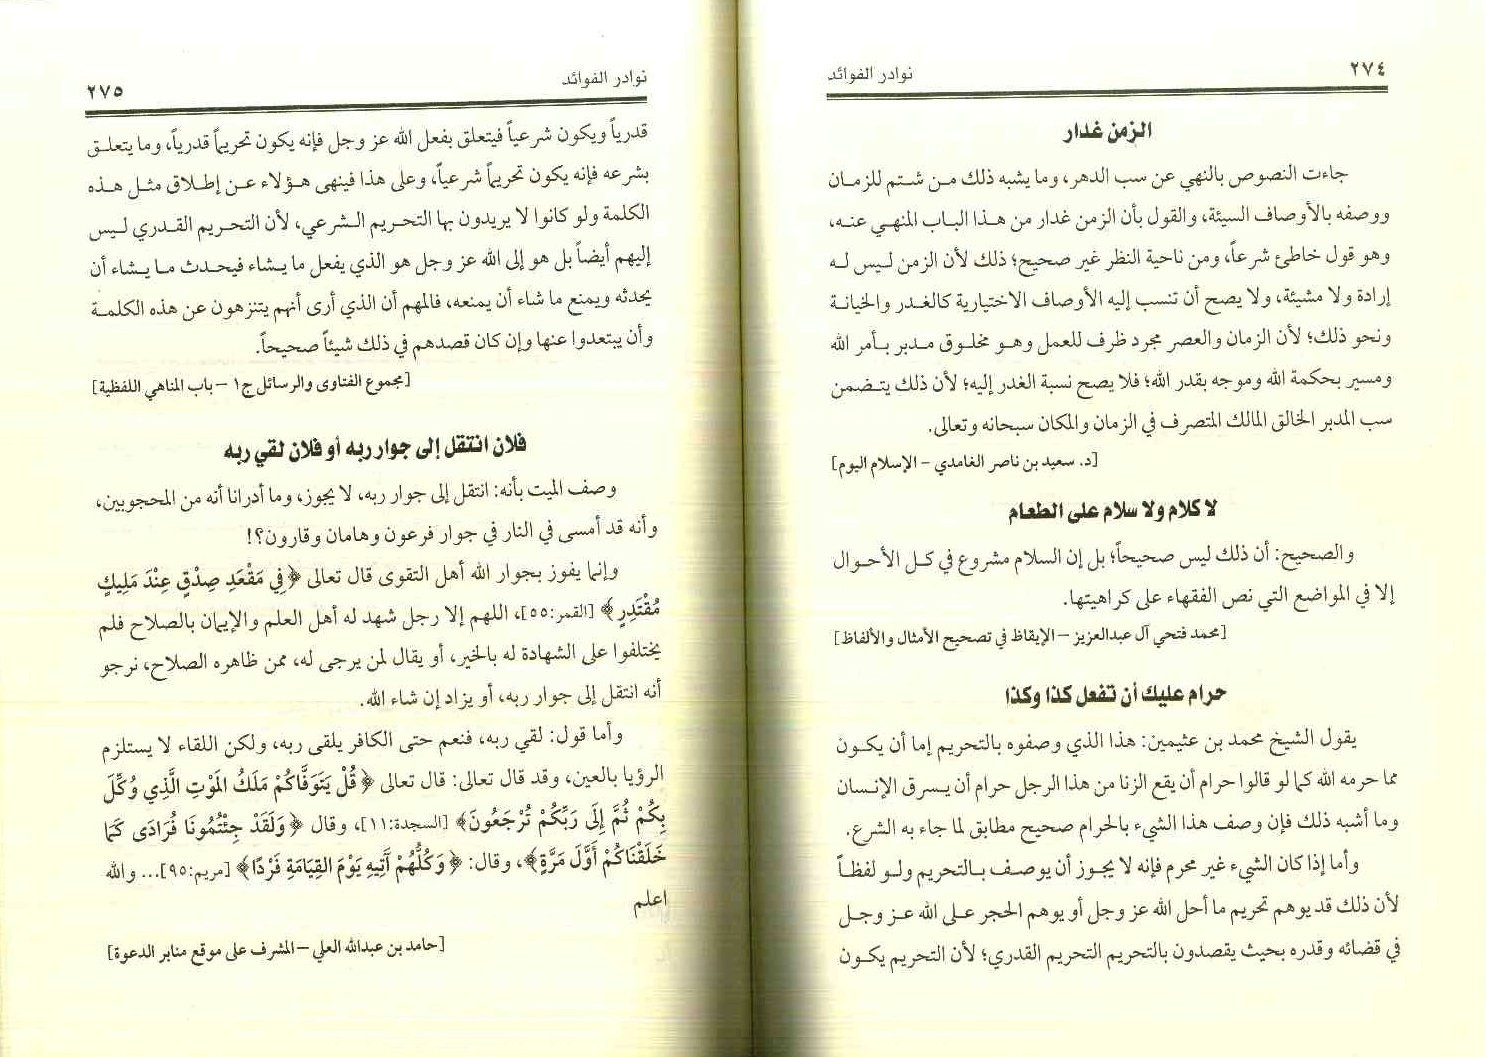 ٢٧٤
نوادر الفوائد
الزمن غدار
جاءت النصوص بالنهي عن سب الدهر، وما يشبه ذلك من شتم للزمان
ووصفه بالأوصاف السيئة، والقول بأن الزمن غدار من هذا الباب المنهي عنه،
وهو قول خاطئ شرعاً، ومن ناحية النظر غير صحيح؛ ذلك لأن الزمن ليس له
إرادة ولا مشيئة، ولا يصح أن تنسب إليه الأوصاف الاختيارية كالغدر والخيانة
ونحو ذلك؛ لأن الزمان والعصر مجرد ظرف للعمل وهو مخلوق مدبر بأمر الله
ومسير بحكمة الله وموجه بقدر الله؛ فلا يصح نسبة الغدر إليه؛ لأن ذلك يتضمن
سب المدبر الخالق المالك المتصرف في الزمان والمكان سبحانه وتعالى.
[د. سعيد بن ناصر الغامدي – الإسلام اليوم]
لا كلام ولا سلام على الطعام
والصحيح: أن ذلك ليس صحيحاً؛ بل إن السلام مشروع في كل الأحوال
إلا في المواضع التي نص الفقهاء على كراهيتها.
[محمد فتحي آل عبدالعزيز – الإيقاظ في تصحيح الأمثال والألفاظ]
حرام عليك أن تفعل كذا وكذا
يقول الشيخ محمد بن عثيمين: هذا الذي وصفوه بالتحريم إما أن يكون
مما حرمه الله كما لو قالوا حرام أن يقع الزنا من هذا الرجل حرام أن يسرق الإنسان
وما أشبه ذلك فإن وصف هذا الشيء بالحرام صحيح مطابق لما جاء به الشرع.
وأما إذا كان الشيء غير محرم فإنه لا يجوز أن يوصف بالتحريم ولو لفظاً
لأن ذلك قد يوهم تحريم ما أحل الله عز وجل أو يوهم الحجر على الله عز وجل
في قضائه وقدره بحيث يقصدون بالتحريم التحريم القدري؛ لأن التحريم يكون
نوادر الفوائد
٢٧٥
قدرياً ويكون شرعياً فيتعلق بفعل الله عز وجل فإنه يكون تحريماً قدرياً، وما يتعلق
بشرعه فإنه يكون تحريماً شرعياً، وعلى هذا فينهى هؤلاء عن إطلاق مثل هذه
الكلمة ولو كانوا لا يريدون بها التحريم الشرعي، لأن التحريم القدري ليس
إليهم أيضاً بل هو إلى الله عز وجل هو الذي يفعل ما يشاء فيحدث ما يشاء أن
يحدثه ويمنع ما شاء أن يمنعه، فالمهم أن الذي أرى أنهم يتنزهون عن هذه الكلمة
وأن يبتعدوا عنها وإن كان قصدهم في ذلك شيئاً صحيحاً.
[مجموع الفتاوى والرسائل ج١ – باب المناهي اللفظية]
فلان انتقل إلى جوار ربه أو فلان لقي ربه
وصف الميت بأنه: انتقل إلى جوار ربه، لا يجوز، وما أدرانا أنه من المحجوبين،
وأنه قد أمسى في النار في جوار فرعون وهامان وقارون؟!
وإنما يفوز بجوار الله أهل التقوى قال تعالى ﴿فِي مَقْعَدِ صِدْقٍ عِنْدَ مَلِيكٍ
مُقْتَدِرٍ﴾ [القمر:٥٥]، اللهم إلا رجل شهد له أهل العلم والإيمان بالصلاح فلم
يختلفوا على الشهادة له بالخير، أو يقال لمن يرجى له، ممن ظاهره الصلاح، نرجو
أنه انتقل إلى جوار ربه، أو يزاد إن شاء الله.
وأما قول: لقي ربه، فنعم حتى الكافر يلقى ربه، ولكن اللقاء لا يستلزم
الرؤيا بالعين، وقد قال تعالى: قال تعالى ﴿قُلْ يَتَوَفَّاكُمْ مَلَكُ المَوْتِ الَّذِي وُكِّلَ
بِكُمْ ثُمَّ إِلَى رَبِّكُمْ تُرْجَعُونَ﴾ [السجدة:١١]، وقال ﴿وَلَقَدْ جِئْتُمُونَا فُرَادَى كَمَا
خَلَقْنَاكُمْ أَوَّلَ مَرَّةٍ﴾، وقال: ﴿وَكُلُّهُمْ آَتِيهِ يَوْمَ القِيَامَةِ فَرْدًا﴾ [مريم:٩٥]... والله
اعلم
[حامد بن عبدالله العلي – المشرف على موقع منابر الدعوة]